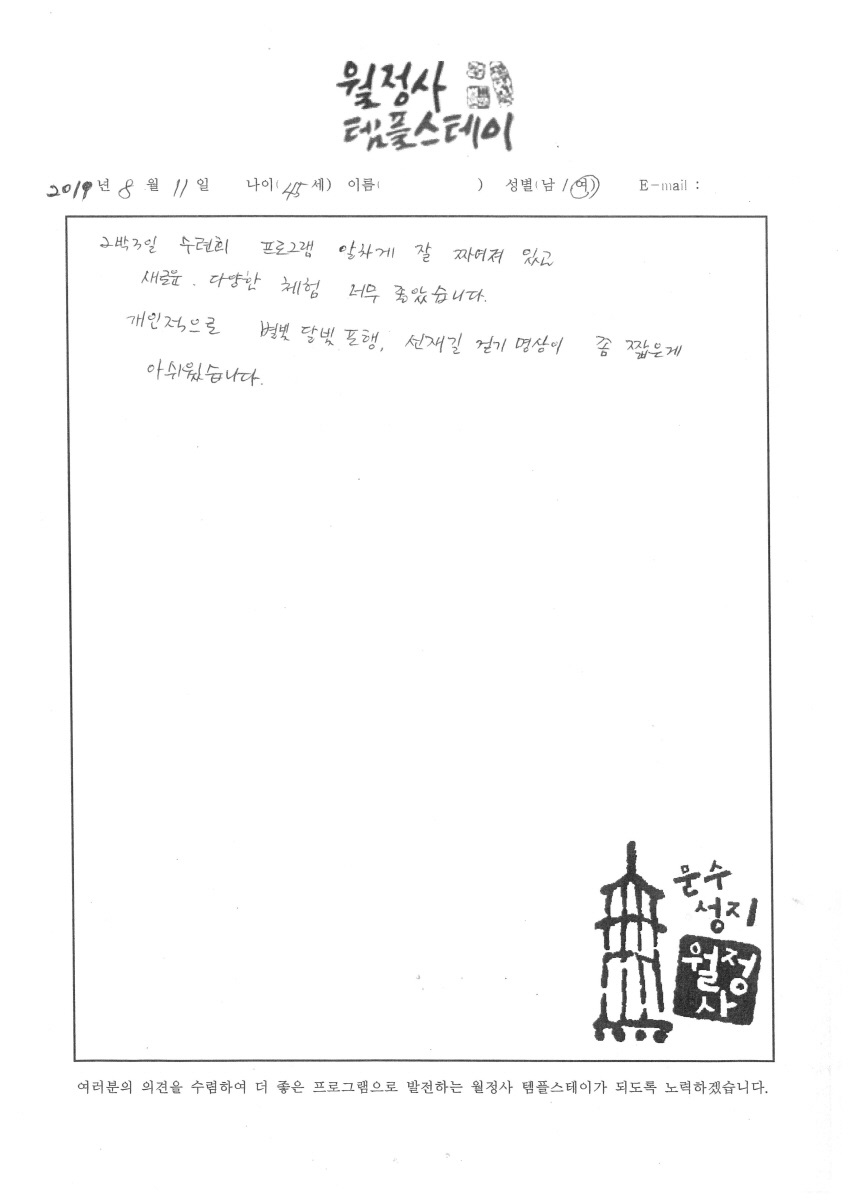 월정사
템플스테이
2019년 8월 11일 나이(45세) 이름( ) 성별(남/여) E-mail :
2박3일 수련회 프로그램 알차게 잘 짜여져 있고
새로운. 다양한 체험 너무 좋았습니다.
개인적으로 별빛 달빛 포행, 선재길 걷기 명상이 좀 짧은게
아쉬웠습니다.
문수
성지
월정
사
여러분의 의견을 수렴하여 더 좋은 프로그램으로 발전하는 월정사 템플스테이가 되도록 노력하겠습니다.